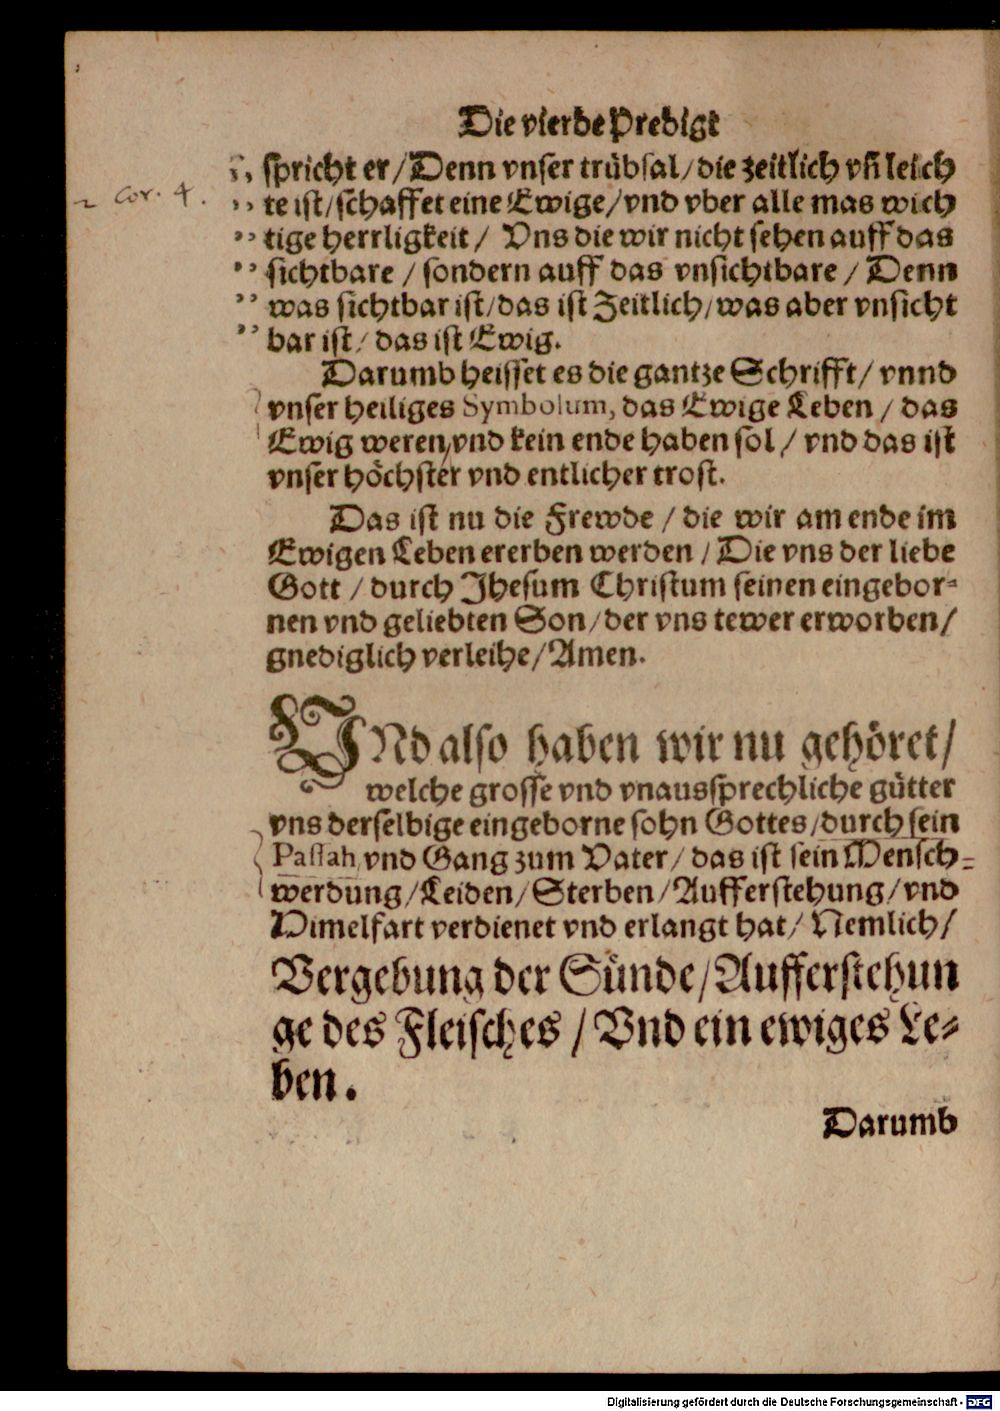 Die vierde Predigt
spricht er/Denn vnser trübsal/die zeitlich vñ leich
2 Cor. 4.
te ist/schaffet eine Ewige/vnd vber alle mas wich
tige herrligkeit/ Vns die wir nicht sehen auff das
sichtbare/sondern auff das vnsichtbare/Denn
was sichtbar ist/das ist Zeitlich/was aber vnsicht
bar ist/das ist Ewig.
Darumb heisset es die gantze Schrifft/vnnd
vnser heiliges Symbolum, das Ewige Leben/das
Ewig weren/vnd kein ende haben sol/vnd das ist
vnser höchster vnd entlicher trost.
Das ist nu die Frewde/die wir am ende im
Ewigen Leben ererben werden/Die vns der liebe
Gott/durch Jhesum Christum seinen eingebor-
nen vnd geliebten Son/der vns tewer erworben/
gnediglich verleihe/Amen.
VNd also haben wir nu gehöret/
welche grosse vnd vnaussprechliche gütter
vns derselbige eingeborne sohn Gottes/durch sein
Passah, vnd Gang zum Vater/das ist sein Mensch-
werdung/Leiden/Sterben/Aufferstehung/vnd
Himelfart verdienet vnd erlangt hat/Nemlich/
Vergebung der Sünde/Aufferstehun
ge des Fleisches/Vnd ein ewiges Le-
ben.
Darumb
Digitalisierung gefördert durch die Deutsche Forschungsgemeinschaft - DFG